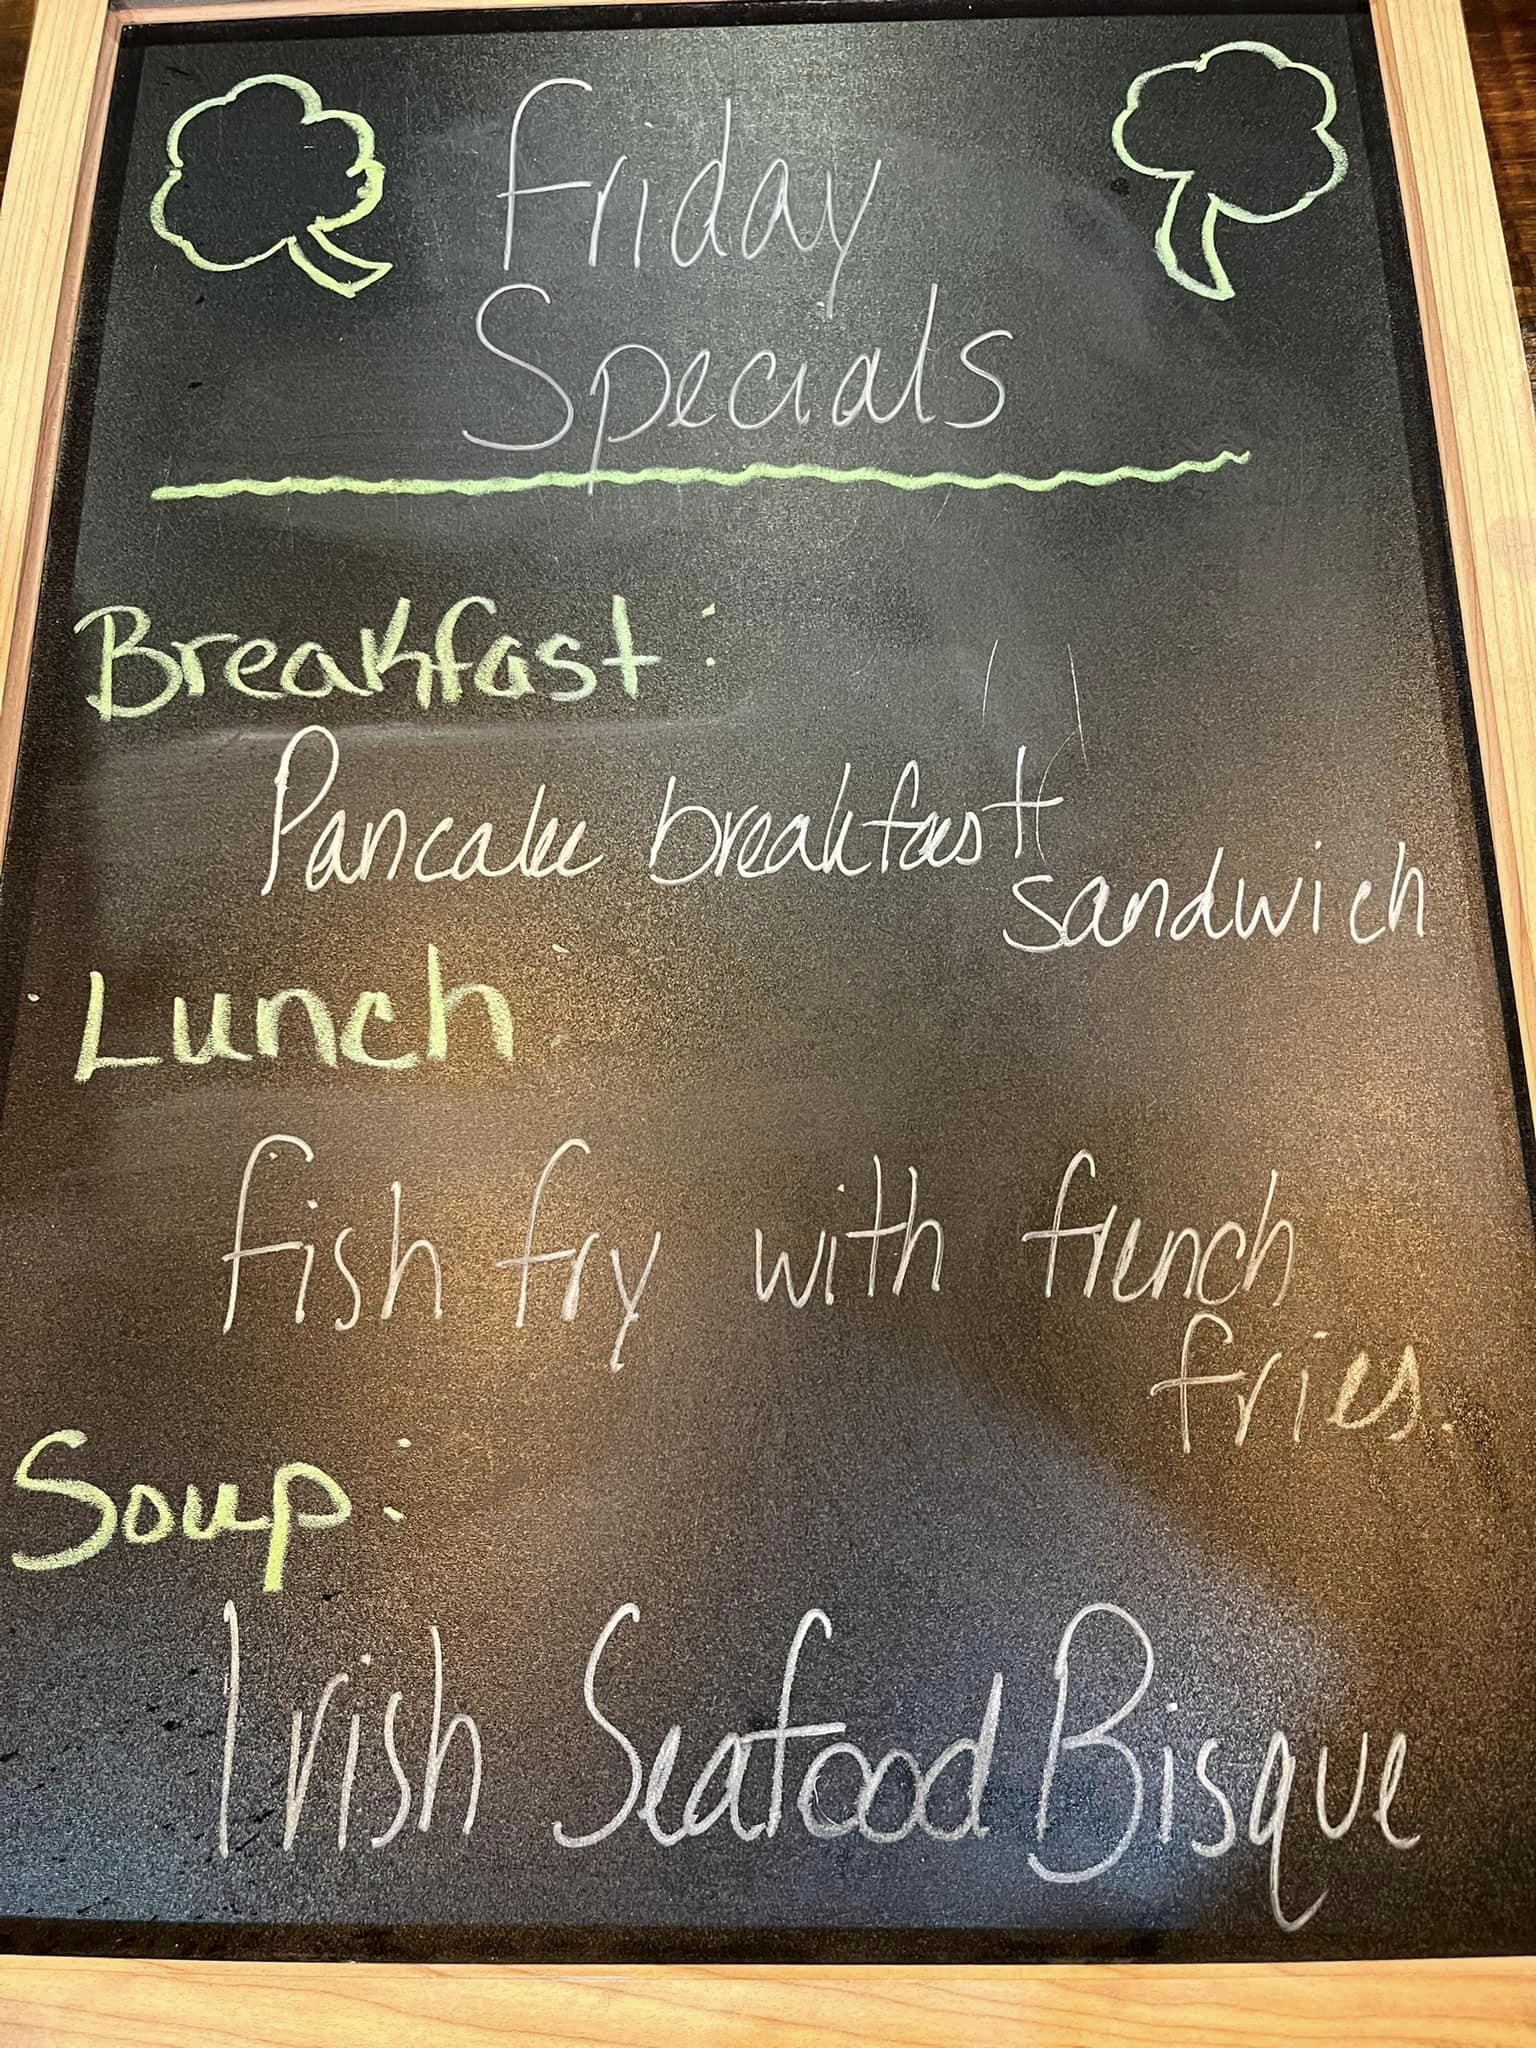 Friday
Specials
Breakfast:
Pancake breakfast
sandwich
Lunch:
fish fry with french
fries.
Soup:
Irish Seafood Bisque